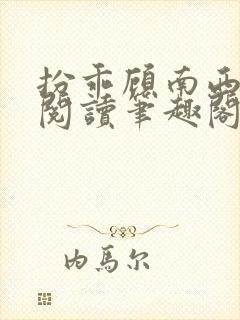 扮乖顾南西
阅读笔趣阁
内马尔